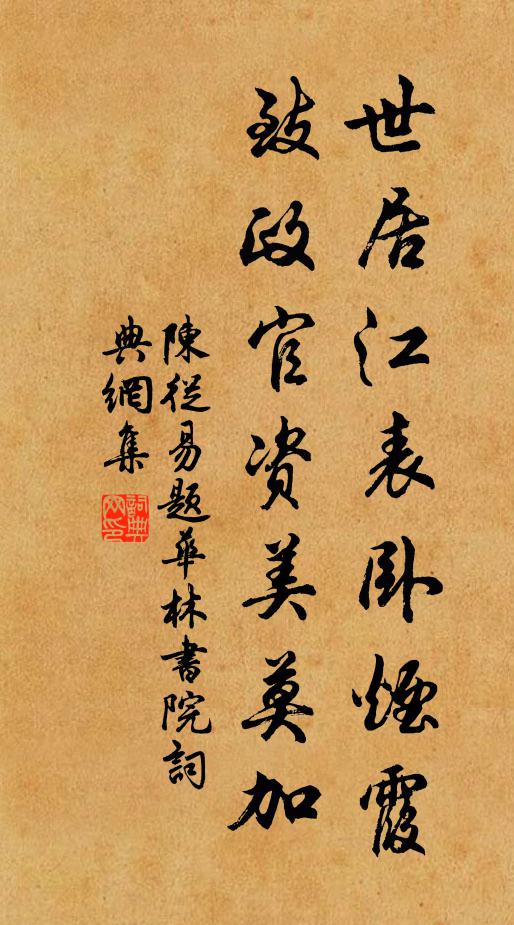 世居江表卧煙霞
致政官资美莫加
陳從易題華林書院詞
典網集
詞典网印